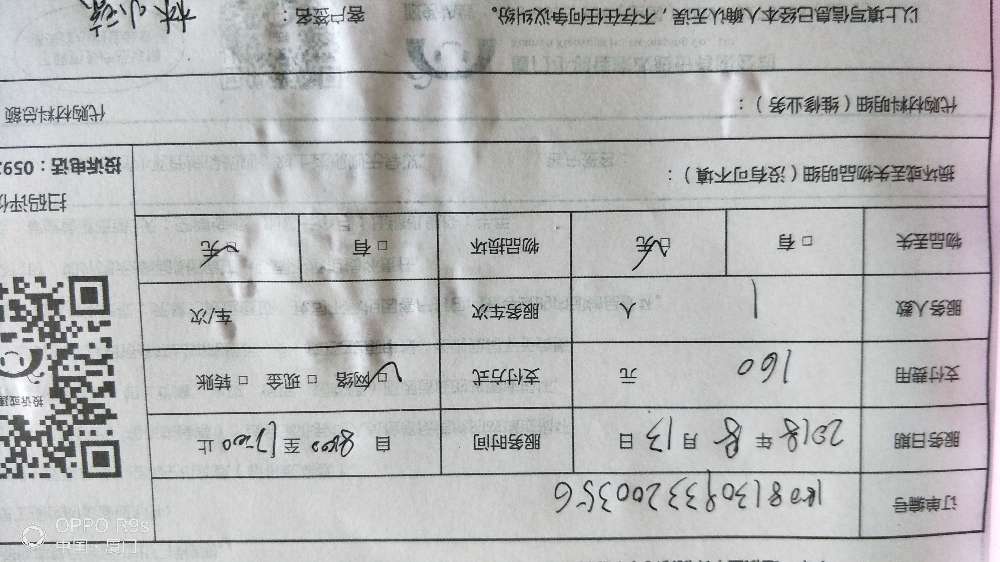 订单编号 1808130933200356
服务日期 2018 年 8 月 13 日 服务时间 自 8:00 至 12:00 止
支付费用 160 元 支付方式 □ 网络 □ 现金 □ 转账
服务人数 1 人 服务车次 车/次
物品丢失 □ 有 □ 无 物品损坏 □ 有 □ 无
损坏或丢失物品明细（没有可不填）：
扫码评价
投诉电话：059
代购材料明细（维修业务）： 代购材料总额
以上填写信息已经本人确认无误，不存在任何争议纠纷。 客户签名：
OPPO R9s
中国·厦门